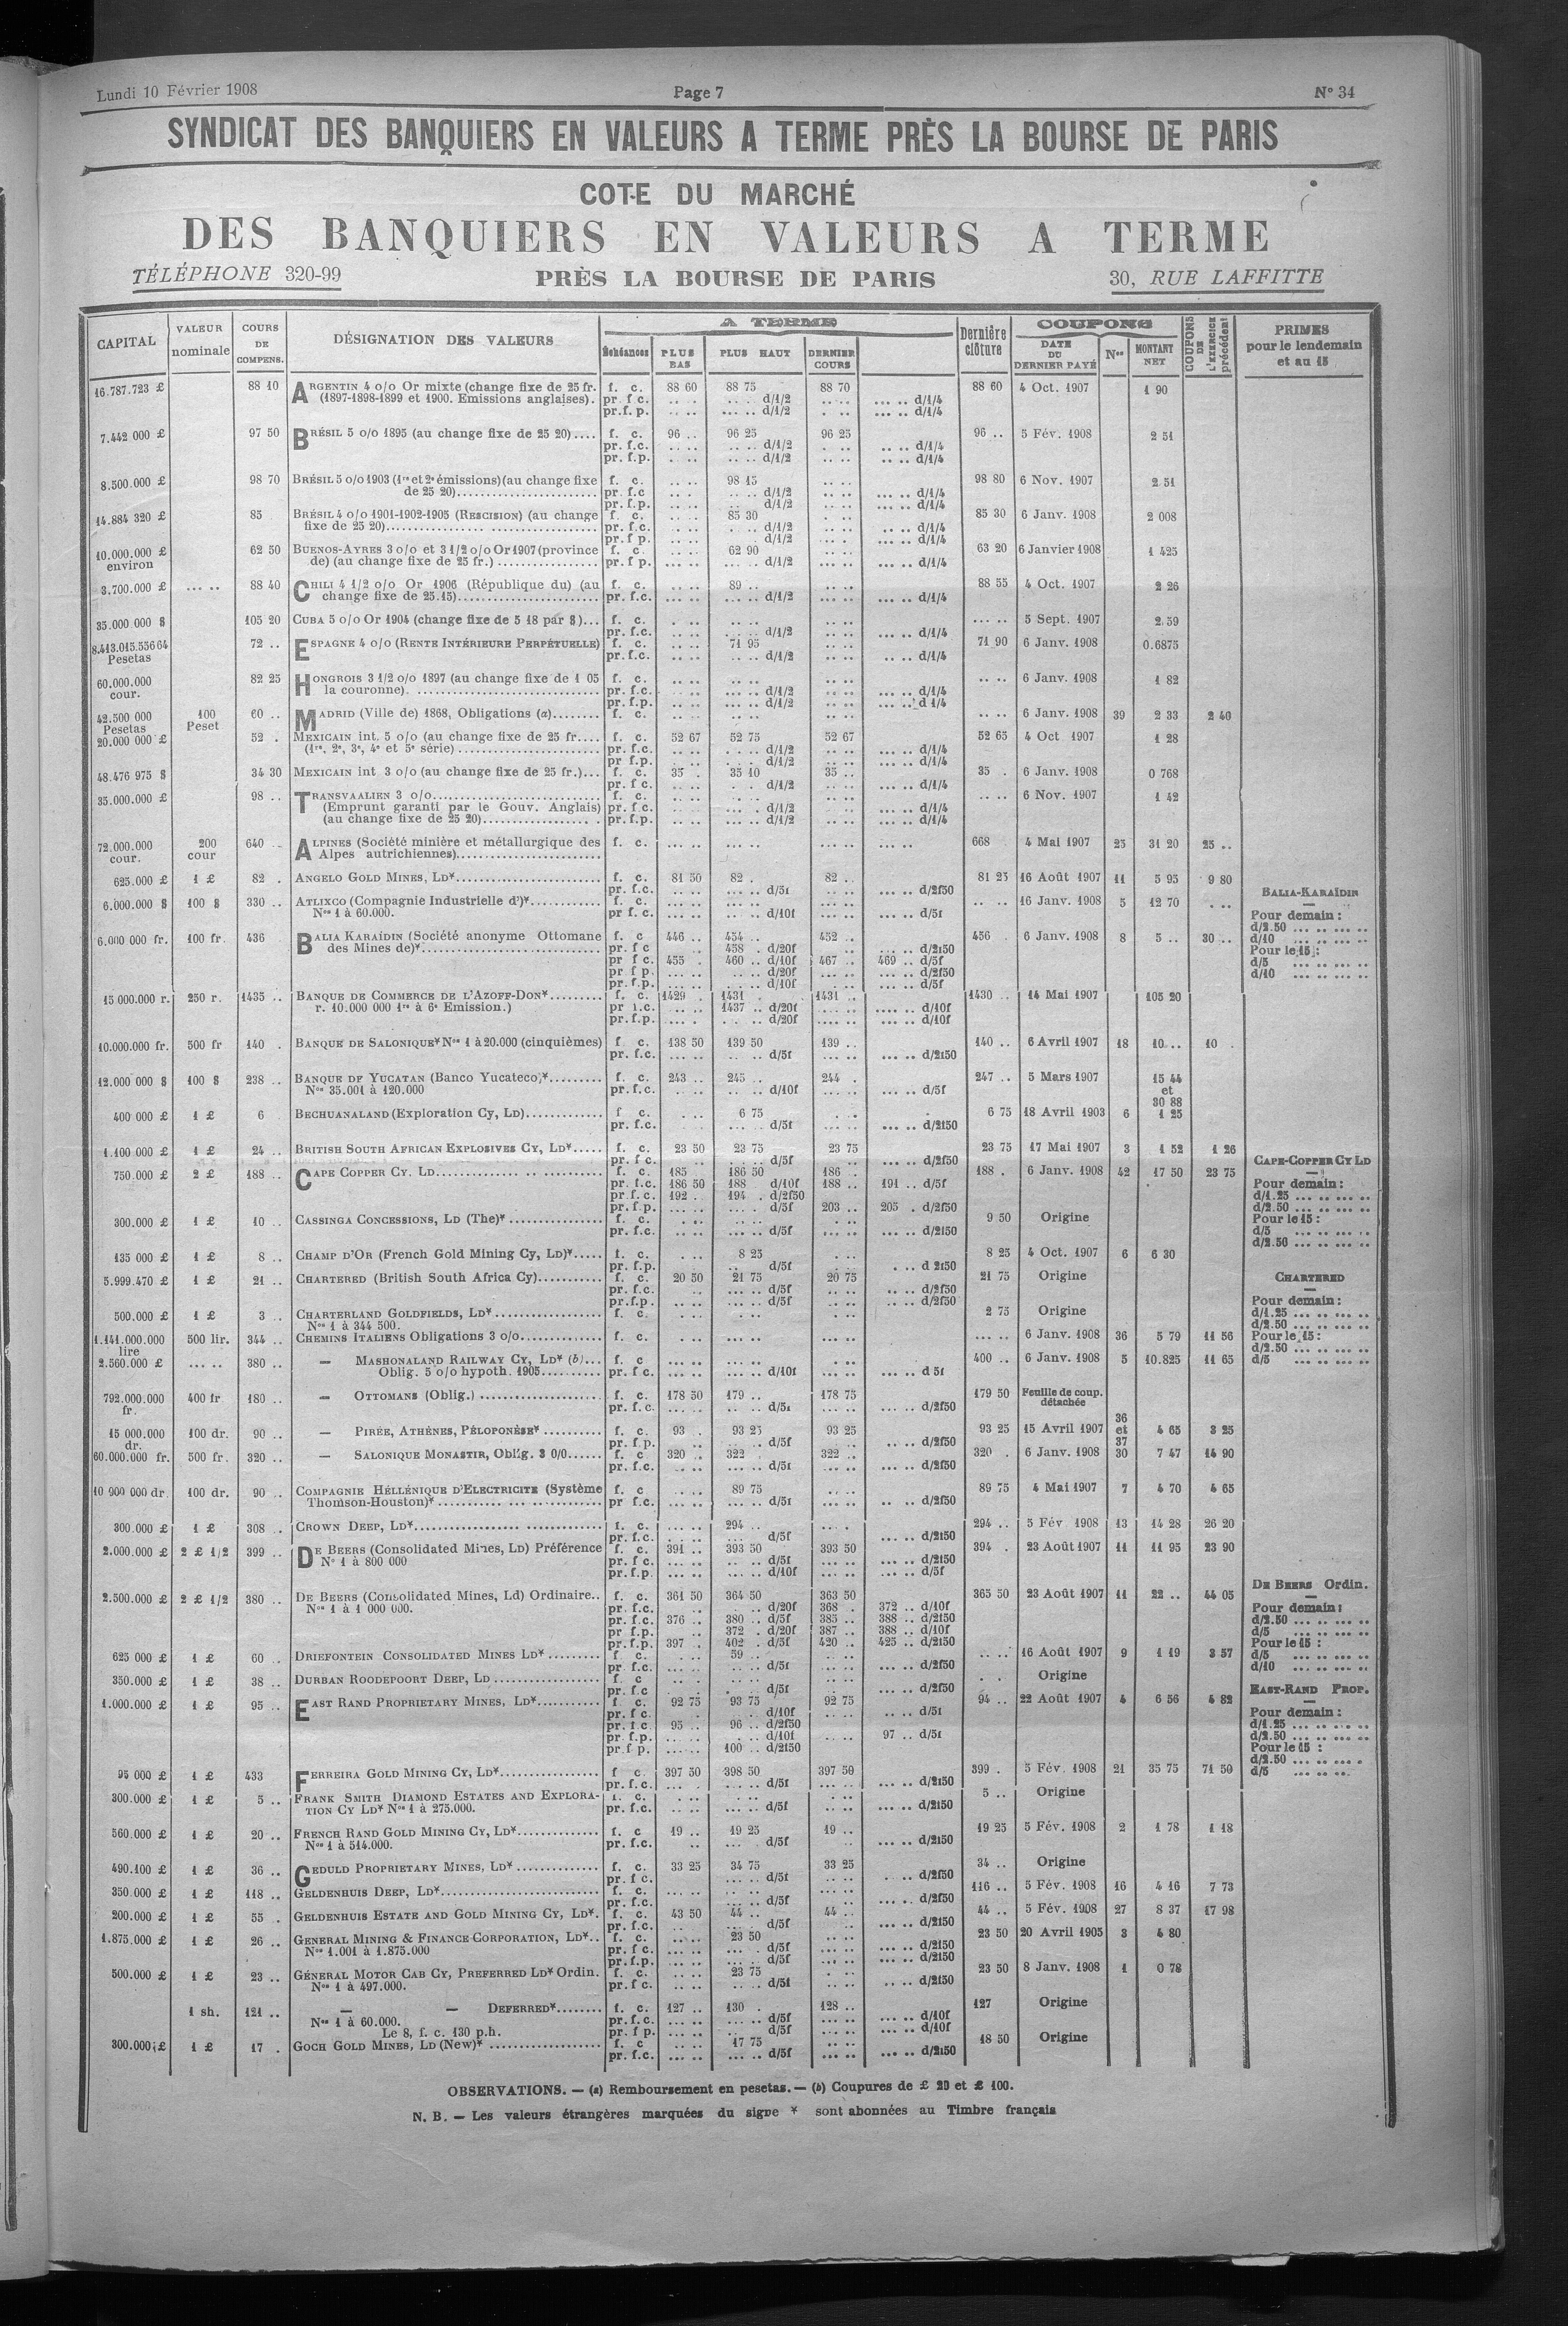 Lundi 10 Février 1908 Page 7 N° 34
SYNDICAT DES BANQUIERS EN VALEURS A TERME PRÈS LA BOURSE DE PARIS
COTE DU MARCHÉ
DES BANQUIERS EN VALEURS A TERME
TÉLÉPHONE 320-99 PRÈS LA BOURSE DE PARIS 30, RUE LAFFITTE
CAPITAL VALEUR nominale COURS DE COMPENS. DÉSIGNATION DES VALEURS A TERME Échéances PLUS BAS PLUS HAUT DERNIER COURS Dernière clôture COUPONS DATE DU DERNIER PAYÉ Nos MONTANT NET COUPONS DE L'EXERCICE précédent PRIMES pour le lendemain et au 15
16.787.723 £ 88 10 ARGENTIN 4 o/o Or mixte (change fixe de 25 fr. f. c. 88 60 88 75 88 70 88 60 4 Oct. 1907 1 90
(1897-1898-1899 et 1900. Emissions anglaises). pr f c. .. .. .. .. d/1/2 .. .. ... .. d/1/4
pr.f. p. .. .. ... .. d/1/2 .. .. ... .. d/1/4
7.442 000 £ 97 50 BRÉSIL 5 o/o 1895 (au change fixe de 25 20).... f. c. 96 .. 96 25 96 25 96 .. 5 Fév. 1908 2 51
pr. f.c. .. .. .. .. d/1/2 .. .. .. .. d/1/4
pr. f.p. .. .. .. .. d/1/2 .. .. .. .. d/1/4
8.500.000 £ 98 70 BRÉSIL 5 o/o 1903 (1re et 2e émissions)(au change fixe f. c. .. .. 98 15 .. .. 98 80 6 Nov. 1907 2 51
de 25 20)........................ pr f.c .. .. .. .. d/1/2 .. .. ... .. d/1/4
pr. f.p. .. .. .. d/1/2 .. .. ... .. d/1/4
14.884 320 £ 85 BRÉSIL 4 o/o 1901-1902-1905 (RESCISION) (au change f. c. .. .. 85 30 85 30 6 Janv. 1908 2 008
fixe de 25 20)................ .................. pr. f.c. .. .. .. d/1/2 .. .. .. .. d/1/4
pr. f p. .. .. d/1/2 .. .. ... .. d/1/4
10.000.000 £ 62 50 BUENOS-AYRES 3 o/o et 3 1/2 o/o Or 1907 (province f. c. .. .. 62 90 63 20 6 Janvier 1908 1 425
environ de) (au change fixe de 25 fr.) ................. pr. f p. .. .. .. .. d/1/2 .. .. ... .. d/1/4
3.700.000 £ ... .. 88 40 CHILI 4 1/2 o/o Or 1906 (République du) (au f. c. .. .. 89 .. .. .. 88 55 4 Oct. 1907 2 26
change fixe de 25.15)........................ pr. f.c. ... .. ... .. d/1/2 ... .. ... .. d/1/4
35.000 000 $ 105 20 CUBA 5 o/o Or 1904 (change fixe de 5 18 par $)... f. c. .. .. .. .. .. .. ... .. 5 Sept. 1907 2.59
pr. f.c. .. .. .. .. d/1/2 .. .. ... .. d/1/4
8.413.015.556 64 72 .. ESPAGNE 4 o/o (RENTE INTÉRIEURE PERPÉTUELLE) f. c. .. .. 71 95 .. .. 71 90 6 Janv. 1908 0.6875
Pesetas pr. f.c. .. .. .. .. d/1/2 .. .. .. .. d/1/4
60.000.000 82 25 HONGROIS 3 1/2 o/o 1897 (au change fixe de 1 05 f. c. .. .. .. .. .. .. .. .. 6 Janv. 1908 1 82
cour. la couronne). .............................. pr. f.c. .. .. ... .. d/1/2 .. .. ... .. d/1/4
pr. f.p. .. .. ... .. d/1/2 .. .. ... .. d 1/4
42.500 000 100 60 .. MADRID (Ville de) 1868, Obligations (a)........ f. c. .. .. .. .. .. .. .. .. 6 Janv. 1908 39 2 33 2 40
Pesetas Peset
20.000 000 £ 52 . MEXICAIN int. 5 o/o (au change fixe de 25 fr.... f. c. 52 67 52 75 52 67 52 65 4 Oct 1907 1 28
(1re, 2e, 3e, 4e et 5e série) ........................ pr. f.c. .. .. .. .. d/1/2 .. .. ... .. d/1/4
pr f.p. .. .. .. .. d/1/2 .. .. ... .. d/1/4
48.476 975 $ 34 30 MEXICAIN int 3 o/o (au change fixe de 25 fr.)... f. c. 35 . 35 10 35 .. 35 . 6 Janv. 1908 0 768
pr f c. .. .. . . d/1/2 .. .. ... .. d/1/4
35.000.000 £ 98 .. TRANSVAALIEN 3 o/o............................ f. c. .. .. .. .. .. .. .. .. 6 Nov. 1907 1 42
(Emprunt garanti par le Gouv. Anglais) pr. f c. .. .. ... . d/1/2 .. .. ... .. d/1/4
(au change fixe de 25 20).................. . pr. f.p. .. .. ... .. d/1/2 .. .. ... .. d/1/4
72.000.000 200 640 .. ALPINES (Société minière et métallurgique des f. c. ... .. ... .. ... .. ... .. 668 . 4 Mai 1907 25 31 20 25 ..
cour. cour Alpes autrichiennes)........................
625.000 £ 1 £ 82 . ANGELO GOLD MINES, LD*......................... f. c. 81 50 82 . 82 .. 81 25 16 Août 1907 11 5 95 9 80
pr. f.c. .. .. ... .. d/5f .. .. ... .. d/2f50 BALIA-KARAÏDIN
6.000.000 $ 100 $ 330 .. ATLIXCO (Compagnie Industrielle d')*............ f. c. .. .. .. .. .. .. .. .. 16 Janv. 1908 5 12 70 . ..
Nos 1 à 60.000. pr f. c. ... .. ... .. d/10f ... .. ... .. d/5f Pour demain :
d/2.50 ... .. ... ..
6.000 000 fr. 100 fr. 436 BALIA KARAÏDIN (Société anonyme Ottomane f. c 446 .. 454 .. 452 .. 456 . 6 Janv. 1908 8 5 .. 30 .. d/10 ... .. ... ..
des Mines de)*............................. pr. f c ... .. 458 . d/20f .. .. ... .. d/2f50 Pour le 15 :
pr f c. 455 . 460 .. d/10f 467 .. 469 .. d/5f d/5 ... .. ... ..
pr f p. ... .. .. .. d/20f ... .. ... .. d/2f50 d/10 ... .. ... ..
pr. f.p. ... .. .. .. d/10f ... .. ... .. d/5f
15 000.000 r. 250 r. 1435 .. BANQUE DE COMMERCE DE L'AZOFF-DON*......... f. c. 1429 . 1431 . 1431 .. 1430 .. 14 Mai 1907 105 20
r. 10.000 000 1re à 6e Emission.) pr f.c. ... .. 1437 .. d/20f .... .. .... .. d/10f
pr. f.p. ... . . .. d/20f .... .. ... .. d/10f
10.000.000 fr. 500 fr 140 . BANQUE DE SALONIQUE* Nos 1 à 20.000 (cinquièmes) f. c. 138 50 139 50 139 .. 140 .. 6 Avril 1907 18 10 .. 10 .
pr. f.c. ... .. .. .. d/5f ... .. ... .. d/2f50
12.000 000 $ 100 $ 238 .. BANQUE DE YUCATAN (Banco Yucateco)*......... f. c. 243 .. 245 .. 244 . 247 .. 5 Mars 1907 15 44
Nos 35.001 à 120.000 pr. f.c. ... .. .. .. d/10f ... .. ... .. d/5f et
30 88
400 000 £ 1 £ 6 BECHUANALAND (Exploration Cy, LD)............. f c. . .. 6 75 . .. 6 75 18 Avril 1903 6 1 25
pr. f.c. .. .. ... .. d/5f .. .. ... .. d/2f50
1.100 000 £ 1 £ 24 .. BRITISH SOUTH AFRICAN EXPLOSIVES CY, LD*..... f. c. 23 50 23 75 23 75 23 75 17 Mai 1907 3 1 52 1 26
pr. f c. .. .. . .. d/5f .. ... .. d/2f50 CAPE-COPPER CY LD
750.000 £ 2 £ 188 .. CAPE COPPER CY. LD.......................... f. c. 185 186 50 186 . 188 . 6 Janv. 1908 42 17 50 23 75
pr. f.c. 186 50 188 d/10f 188 .. 191 .. d/5f Pour demain :
pr.f. c. 192 .. 194 . d/2f50 d/1.25 ... .. ... ..
pr. f.p. ... .. .. . d/5f 203 .. 205 . d/2f50 d/2.50 ... .. ... ..
300.000 £ 1 £ 10 .. CASSINGA CONCESSIONS, LD (The)* ................ f. c. . .. .. .. . .. 9 50 Origine Pour le 15 :
pr. f.c. .. .. ... .. d/5f .. .. ... .. d/2f50 d/5 ... .. ... ..
d/2.50 ... .. ... ..
135 000 £ 1 £ 8 .. CHAMP D'OR (French Gold Mining Cy, LD)*..... f. c. . .. 8 25 . .. 8 25 4 Oct. 1907 6 6 30
pr. f.p. .. .. .. d/5f .. .. . .. d 2f50
5.999.470 £ 1 £ 21 .. CHARTERED (British South Africa Cy)........... f. c. 20 50 21 75 20 75 21 75 Origine CHARTERED
pr. f.c. .. ... .. d/5f .. .. ... .. d/2f50
pr.f.p. .. .. ... .. d/5f .. .. .. .. d/2f50 Pour demain :
500.000 £ 1 £ 3 .. CHARTERLAND GOLDFIELDS, LD* ................... f. c. . .. . .. . .. 2 75 Origine d/1.25 ... .. ... ..
Nos 1 à 344 500. d/2.50 ... .. ... ..
1.141.000.000 500 lir. 344 .. CHEMINS ITALIENS Obligations 3 o/o............... f. c. ... .. ... .. ... .. ... .. 6 Janv. 1908 36 5 79 11 56 Pour le 15 :
lire d/2.50 ... .. ... ..
2.560.000 £ ... .. 380 .. — MASHONALAND RAILWAY CY, LD* (b)... f. c ... .. ... .. ... .. 400 .. 6 Janv. 1908 5 10.825 11 65 d/5 ... .. ... ..
Oblig. 5 o/o hypoth. 1905.......... pr. f c. ... .. ... .. d/10f ... .. ... .. d 5f
792.000.000 400 fr 180 .. — OTTOMANS (Oblig.) ..................... f. c. 178 50 179 .. 178 75 179 50 Feuille de coup.
fr. pr. f.c. ... .. .. .. d/5f ... .. ... .. d/2f50 détachée
36
15 000.000 100 dr. 90 .. — PIRÉE, ATHÈNES, PÉLOPONÈSE* .......... f. c. 93 . 93 25 93 25 93 25 15 Avril 1907 et 4 65 3 25
dr. pr. f.p. .. .. .. .. d/5f .. .. .. .. d/2f50 37
60.000.000 fr. 500 fr. 320 .. — SALONIQUE MONASTIR, Oblig. 3 0/0...... f. c 320 .. 322 . 322 .. 320 . 6 Janv. 1908 30 7 47 14 90
pr. f.c. .. .. ... .. d/5f ... .. ... .. d/2f50
10 900 000 dr. 100 dr. 90 .. COMPAGNIE HÉLLÉNIQUE D'ELECTRICITE (Système f. c . .. 89 75 .. .. 89 75 4 Mai 1907 7 4 70 4 65
Thomson-Houston)*........................... pr f.c. ... .. ... .. d/5f ... .. .. .. d/2f50
300.000 £ 1 £ 308 .. CROWN DEEP, LD*................. ............. f. c. ... .. 294 .. .. . 294 .. 5 Fév 1908 13 14 28 26 20
pr. f.c. .. .. ... .. d/5f ... .. ... .. d/2f50
2.000.000 £ 2 £ 1/2 399 .. DE BEERS (Consolidated Mines, LD) Préférence f. c. 391 .. 393 50 393 50 394 . 23 Août 1907 11 11 95 23 90
No 1 à 800 000 pr. f c. ... .. ... .. d/5f ... .. ... .. d/2f50
pr. f.p. ... .. ... .. d/10f ... .. ... .. d/5f
2.500.000 £ 2 £ 1/2 380 .. DE BEERS (Consolidated Mines, Ld) Ordinaire.. f. c. 361 50 364 50 363 50 365 50 23 Août 1907 11 22 .. 44 05 DE BEERS Ordin.
Nos 1 à 1 000 000. pr. f.c. .. .. .. d/20f 368 . 372 .. d/10f Pour demain :
pr. f.c. 376 .. 380 .. d/5f 385 .. 388 .. d/2f50 d/2.50 ... .. ... ..
pr f.p. .. 372 . d/20f 387 .. 388 .. d/10f d/5 ... .. ... ..
pr. f.p. 397 . 402 . d/5f 420 .. 425 .. d/2f50 Pour le 15 :
625 000 £ 1 £ 60 .. DRIEFONTEIN CONSOLIDATED MINES LD* ......... f. c. .. .. 59 .. .. .. .. .. 16 Août 1907 9 1 19 3 57 d/5 ... .. ... ..
pr. f.c. .. .. .. .. d/5f .. .. ... .. d/2f50 d/10 ... .. ... ..
350.000 £ 1 £ 38 .. DURBAN ROODEPOORT DEEP, LD ................... f. c .. .. .. .. .. .. . . Origine
pr. f.c .. .. . . d/5f .. .. ... .. d/2f50 EAST-RAND PROP.
1.000.000 £ 1 £ 95 .. EAST RAND PROPRIETARY MINES, LD*........... f. c. 92 75 93 75 92 75 94 .. 22 Août 1907 4 6 56 4 82
pr. f c. . .. d/10f .. .. .. .. d/5f Pour demain :
pr. f.c. 95 .. 96 .. d/2f50 d/1.25 ... .. ... ..
pr. f.p. ... .. . .. d/10f ... .. 97 .. d/5f d/2.50 ... .. ... ..
pr.f.p. ... .. 100 .. d/2f50 Pour le 15 :
d/2.50 ... .. ... .
95 000 £ 1 £ 433 FERREIRA GOLD MINING CY, LD*................ f c. 397 50 398 50 397 50 399 . 5 Fév. 1908 21 35 75 71 50 d/5 ... .. ...
pr. f.c. ... . ... .. d/5f ... .. ... .. d/2f50
300.000 £ 1 £ 5 .. FRANK SMITH DIAMOND ESTATES AND EXPLORA- f. c. . .. . .. . .. 5 .. Origine
TION CY LD* Nos 1 à 275.000. pr. f.c. .. .. ... .. d/5f .. .. ... .. d/2f50
560.000 £ 1 £ 20 .. FRENCH RAND GOLD MINING CY, LD*.............. f. c 19 .. 19 25 19 .. 19 25 5 Fév. 1908 2 1 78 1 18
Nos 1 à 514.000. pr. f.c. .. ... . d/5f .. ... .. d/2f50
490.100 £ 1 £ 36 .. GEDULD PROPRIETARY MINES, LD* .............. f. c. 33 25 34 75 33 25 34 .. Origine
pr. f c. ... .. d/5f .. .. . .. d/2f50
350.000 £ 1 £ 118 .. GELDENHUIS DEEP, LD*........................... f. c. ... .. .. .. ... .. 116 .. 5 Fév. 1908 16 4 16 7 73
pr. f.c. .. .. ... .. d/5f .. .. ... .. d/2f50
200.000 £ 1 £ 55 . GELDENHUIS ESTATE AND GOLD MINING CY, LD*. f. c. 43 50 44 .. 44 .. 44 .. 5 Fév. 1908 27 8 37 17 98
pr. f.c. .. ... . d/5f .. .. ... .. d/2f50
1.875.000 £ 1 £ 26 .. GENERAL MINING & FINANCE CORPORATION, LD*.. f. c. .. .. 23 50 .. .. 23 50 20 Avril 1905 3 4 80
Nos 1.001 à 1.875.000 pr. f c. ... .. ... . d/5f .. .. ... .. d/2f50
pr. f.p. .. .. ... . d/5f .. .. ... .. d/2f50
500.000 £ 1 £ 23 .. GÉNERAL MOTOR CAB CY, PREFERRED LD* Ordin. f. c. .. .. 23 75 . .. 23 50 8 Janv. 1908 1 0 78
Nos 1 à 497.000. pr. f c. .. .. .. .. d/5f .. .. .. .. d/2f50
1 sh. 121 .. — — DEFERRED*........ f. c. 127 .. 130 . 128 .. 127 Origine
Nos 1 à 60.000. pr. f.c. ... .. ... .. d/5f ... .. ... .. d/10f
Le 8, f. c. 130 p.h. pr. f p. ... .. .. d/5f ... .. ... .. d/10f
300.000 £ 1 £ 17 . GOCH GOLD MINES, LD (New)* ................... f. c .. .. 17 75 .. .. 18 50 Origine
pr. f.c. ... .. ... .. d/5f ... .. ... .. d/2f50
OBSERVATIONS. — (a) Remboursement en pesetas. — (b) Coupures de £ 20 et £ 100.
N. B. — Les valeurs étrangères marquées du signe * sont abonnées au Timbre français